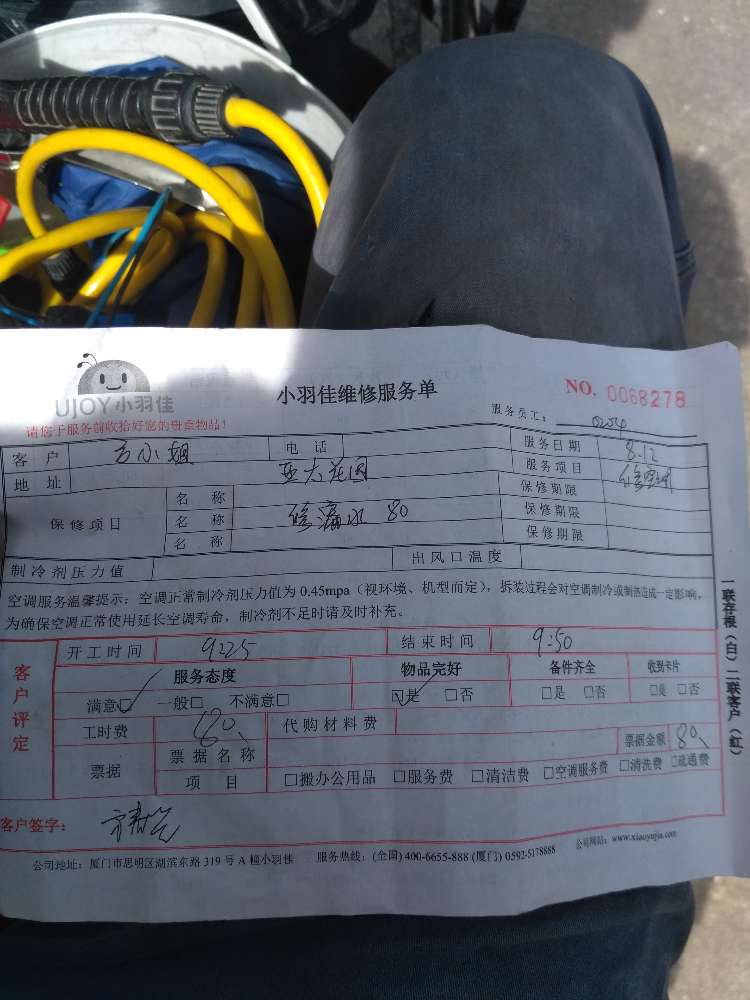 UJOY小羽佳
小羽佳维修服务单
NO. 0068278
请您于服务前收拾好您的贵重物品!
服务员工:
客 户 方小姐 电 话 服务日期 8.12
地 址 亚大花园 服务项目
保修项目
名 称 保修期限
名 称 修漏水 80 保修期限
名 称 保修期限
制冷剂压力值 出风口温度
空调服务温馨提示:空调正常制冷剂压力值为 0.45mpa(视环境、机型而定),拆装过程会对空调制冷或制热造成一定影响,
为确保空调正常使用延长空调寿命,制冷剂不足时请及时补充。
一联存根(白)二联客户(红)
客户评定
开工时间 9:25 结束时间 9:50
服务态度 物品完好 备件齐全 收到卡片
满意□ 一般□ 不满意□ □是 □否 □是 □否 □是 □否
工时费 80 代购材料费
票据 票据名称 票据金额 80
项 目 □搬办公用品 □服务费 □清洁费 □空调服务费 □清洗费 □疏通费
客户签字:
公司地址:厦门市思明区湖滨东路 319 号 A 幢小羽佳 服务热线:(全国) 400-6655-888 (厦门) 0592-5178888 公司网站:www.xiaoyujia.com